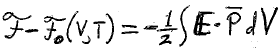 ℱ - ℱ₀(V,T) = -½∫𝔼·P̄dV